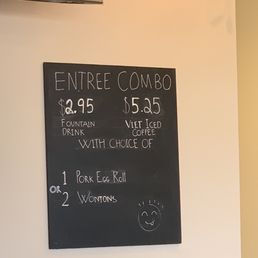 ENTREE COMBO
$2.95 $5.25
FOUNTAIN VIET ICED
DRINK COFFEE
WITH CHOICE OF
1 PORK EGG ROLL
OR
2 WONTONS